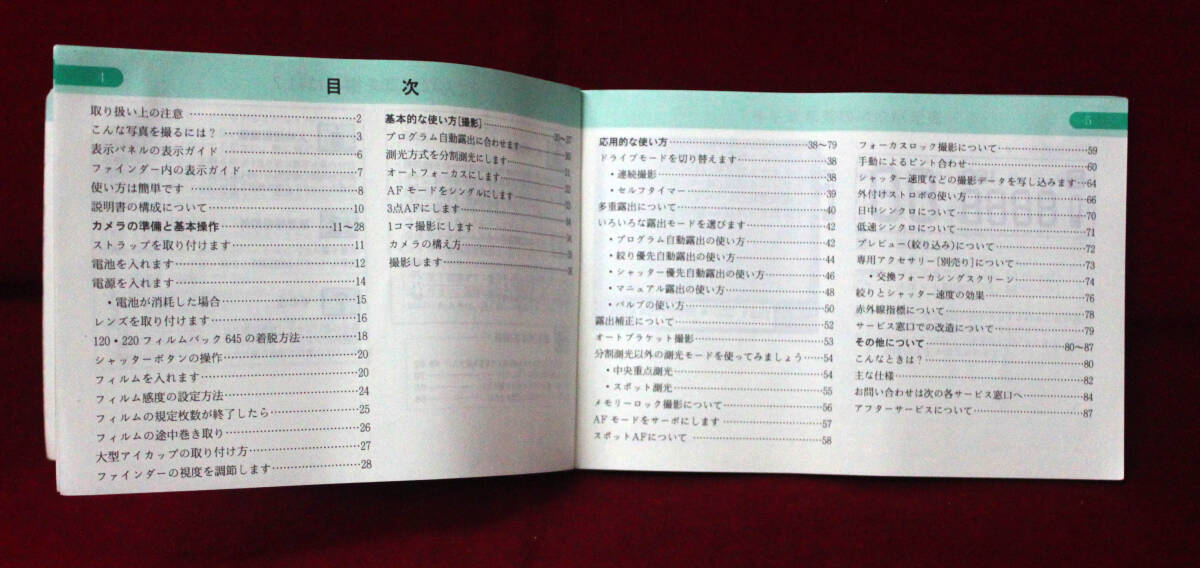 目 次
取り扱い上の注意 2
こんな写真を撮るには? 3
表示パネルの表示ガイド 6
ファインダー内の表示ガイド 7
使い方は簡単です 8
説明書の構成について 10
カメラの準備と基本操作 11〜28
ストラップを取り付けます 11
電池を入れます 12
電源を入れます 14
・電池が消耗した場合 15
レンズを取り付けます 16
120・220フィルムバック645の着脱方法 18
シャッターボタンの操作 20
フィルムを入れます 20
フィルム感度の設定方法 24
フィルムの規定枚数が終了したら 25
フィルムの途中巻き取り 26
大型アイカップの取り付け方 27
ファインダーの視度を調節します 28
基本的な使い方[撮影]
プログラム自動露出に合わせます
測光方式を分割測光にします
オートフォーカスにします
AFモードをシングルにします
3点AFにします
1コマ撮影にします
カメラの構え方
撮影します
5
応用的な使い方 38〜79
ドライブモードを切り替えます 38
・連続撮影 38
・セルフタイマー 39
多重露出について 40
いろいろな露出モードを選びます 42
・プログラム自動露出の使い方 42
・絞り優先自動露出の使い方 44
・シャッター優先自動露出の使い方 46
・マニュアル露出の使い方 48
・バルブの使い方 50
露出補正について 52
オートブラケット撮影 53
分割測光以外の測光モードを使ってみましょう 54
・中央重点測光 54
・スポット測光 55
メモリーロック撮影について 56
AFモードをサーボにします 57
スポットAFについて 58
フォーカスロック撮影について 59
手動によるピント合わせ 60
シャッター速度などの撮影データを写し込みます 64
外付けストロボの使い方 66
日中シンクロについて 70
低速シンクロについて 71
プレビュー(絞り込み)について 72
専用アクセサリー[別売り]について 73
・交換フォーカシングスクリーン 74
絞りとシャッター速度の効果 76
赤外線指標について 78
サービス窓口での改造について 79
その他について 80〜87
こんなときは? 80
主な仕様 82
お問い合わせは次の各サービス窓口へ 84
アフターサービスについて 87